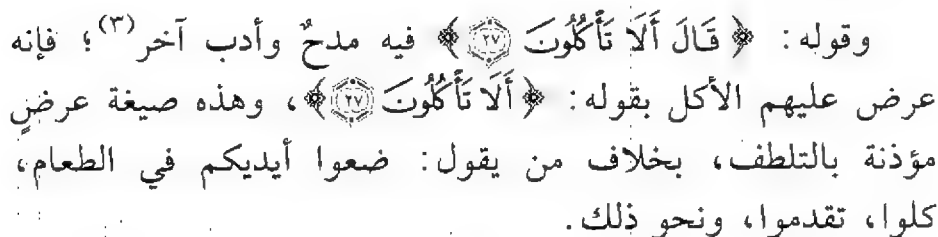 وقوله: ﴿قَالَ أَلَا تَأْكُلُونَ ٢٧﴾ فيه مدحٌ وأدب آخر(٣)؛ فإنه
عرض عليهم الأكل بقوله: ﴿أَلَا تَأْكُلُونَ ٢٧﴾، وهذه صيغة عرضٍ
مؤذنة بالتلطف، بخلاف من يقول: ضعوا أيديكم في الطعام،
كلوا، تقدموا، ونحو ذلك.